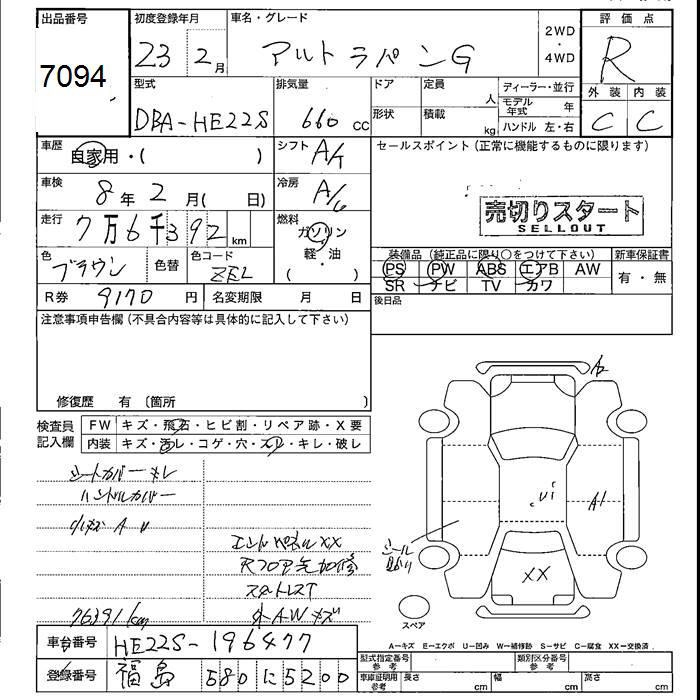 出品番号 7094
初度登録年月 23 2月
車名・グレード アルト ラパン G
2WD・4WD
評価点 R
型式 DBA-HE22S
排気量 660 cc
ドア 形状
定員 人
積載 kg
ディーラー・並行
モデル年式 年
ハンドル 左・右
外装 内装
C C
車歴 自家用・( )
シフト A/T
セールスポイント(正常に機能するものに限ります)
車検 8年 2月( 日)
冷房 A/C
売切りスタート
SELLOUT
走行 7万6千392km
燃料 ガソリン 軽・油 ( )
色 ブラウン 色替 色コード ZEL
装備品(純正品に限り○をつけて下さい) 新車保証書
PS PW ABS エアB AW 有・無
SR ナビ TV カワ
R券 9170円 名変期限 月 日
後日品
注意事項申告欄(不具合内容等は具体的に記入して下さい)
修復歴 有 〔箇所 〕
検査員記入欄
FW キズ・飛石・ヒビ割・リペア跡・X要
内装 キズ・汚レ・コゲ・穴・スリ・キレ・破レ
シートカバー
ハンドルカバー
小キズ A U
エンドパネルXX
Rフロア先加修
76391km
外AWキズ
A2
U1
A1
シール貼り
XX
スペア
A=キズ E=エクボ U=凹み W=補修跡 S=サビ C=腐食 XX=交換済
車台番号 HE22S-196477
登録番号 福島 580 に 5200
型式指定番号 参考
類別区分番号 参考
車庫証明用 参考 長さ cm 幅 cm 高さ cm